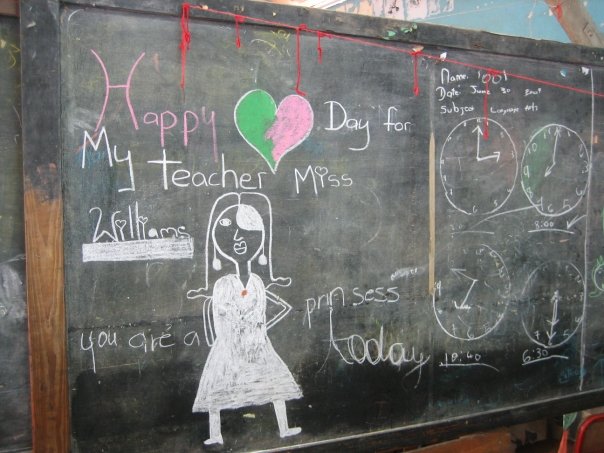 Happy Day for
My teacher Miss
Williams
you are a prinsess
today
Name:
Date: June 30
Subject Language Arts
8:00
10:40
6:30